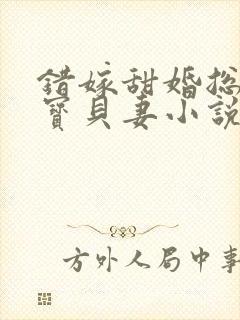 错嫁甜婚总
寶貝妻小說
方外人局中事